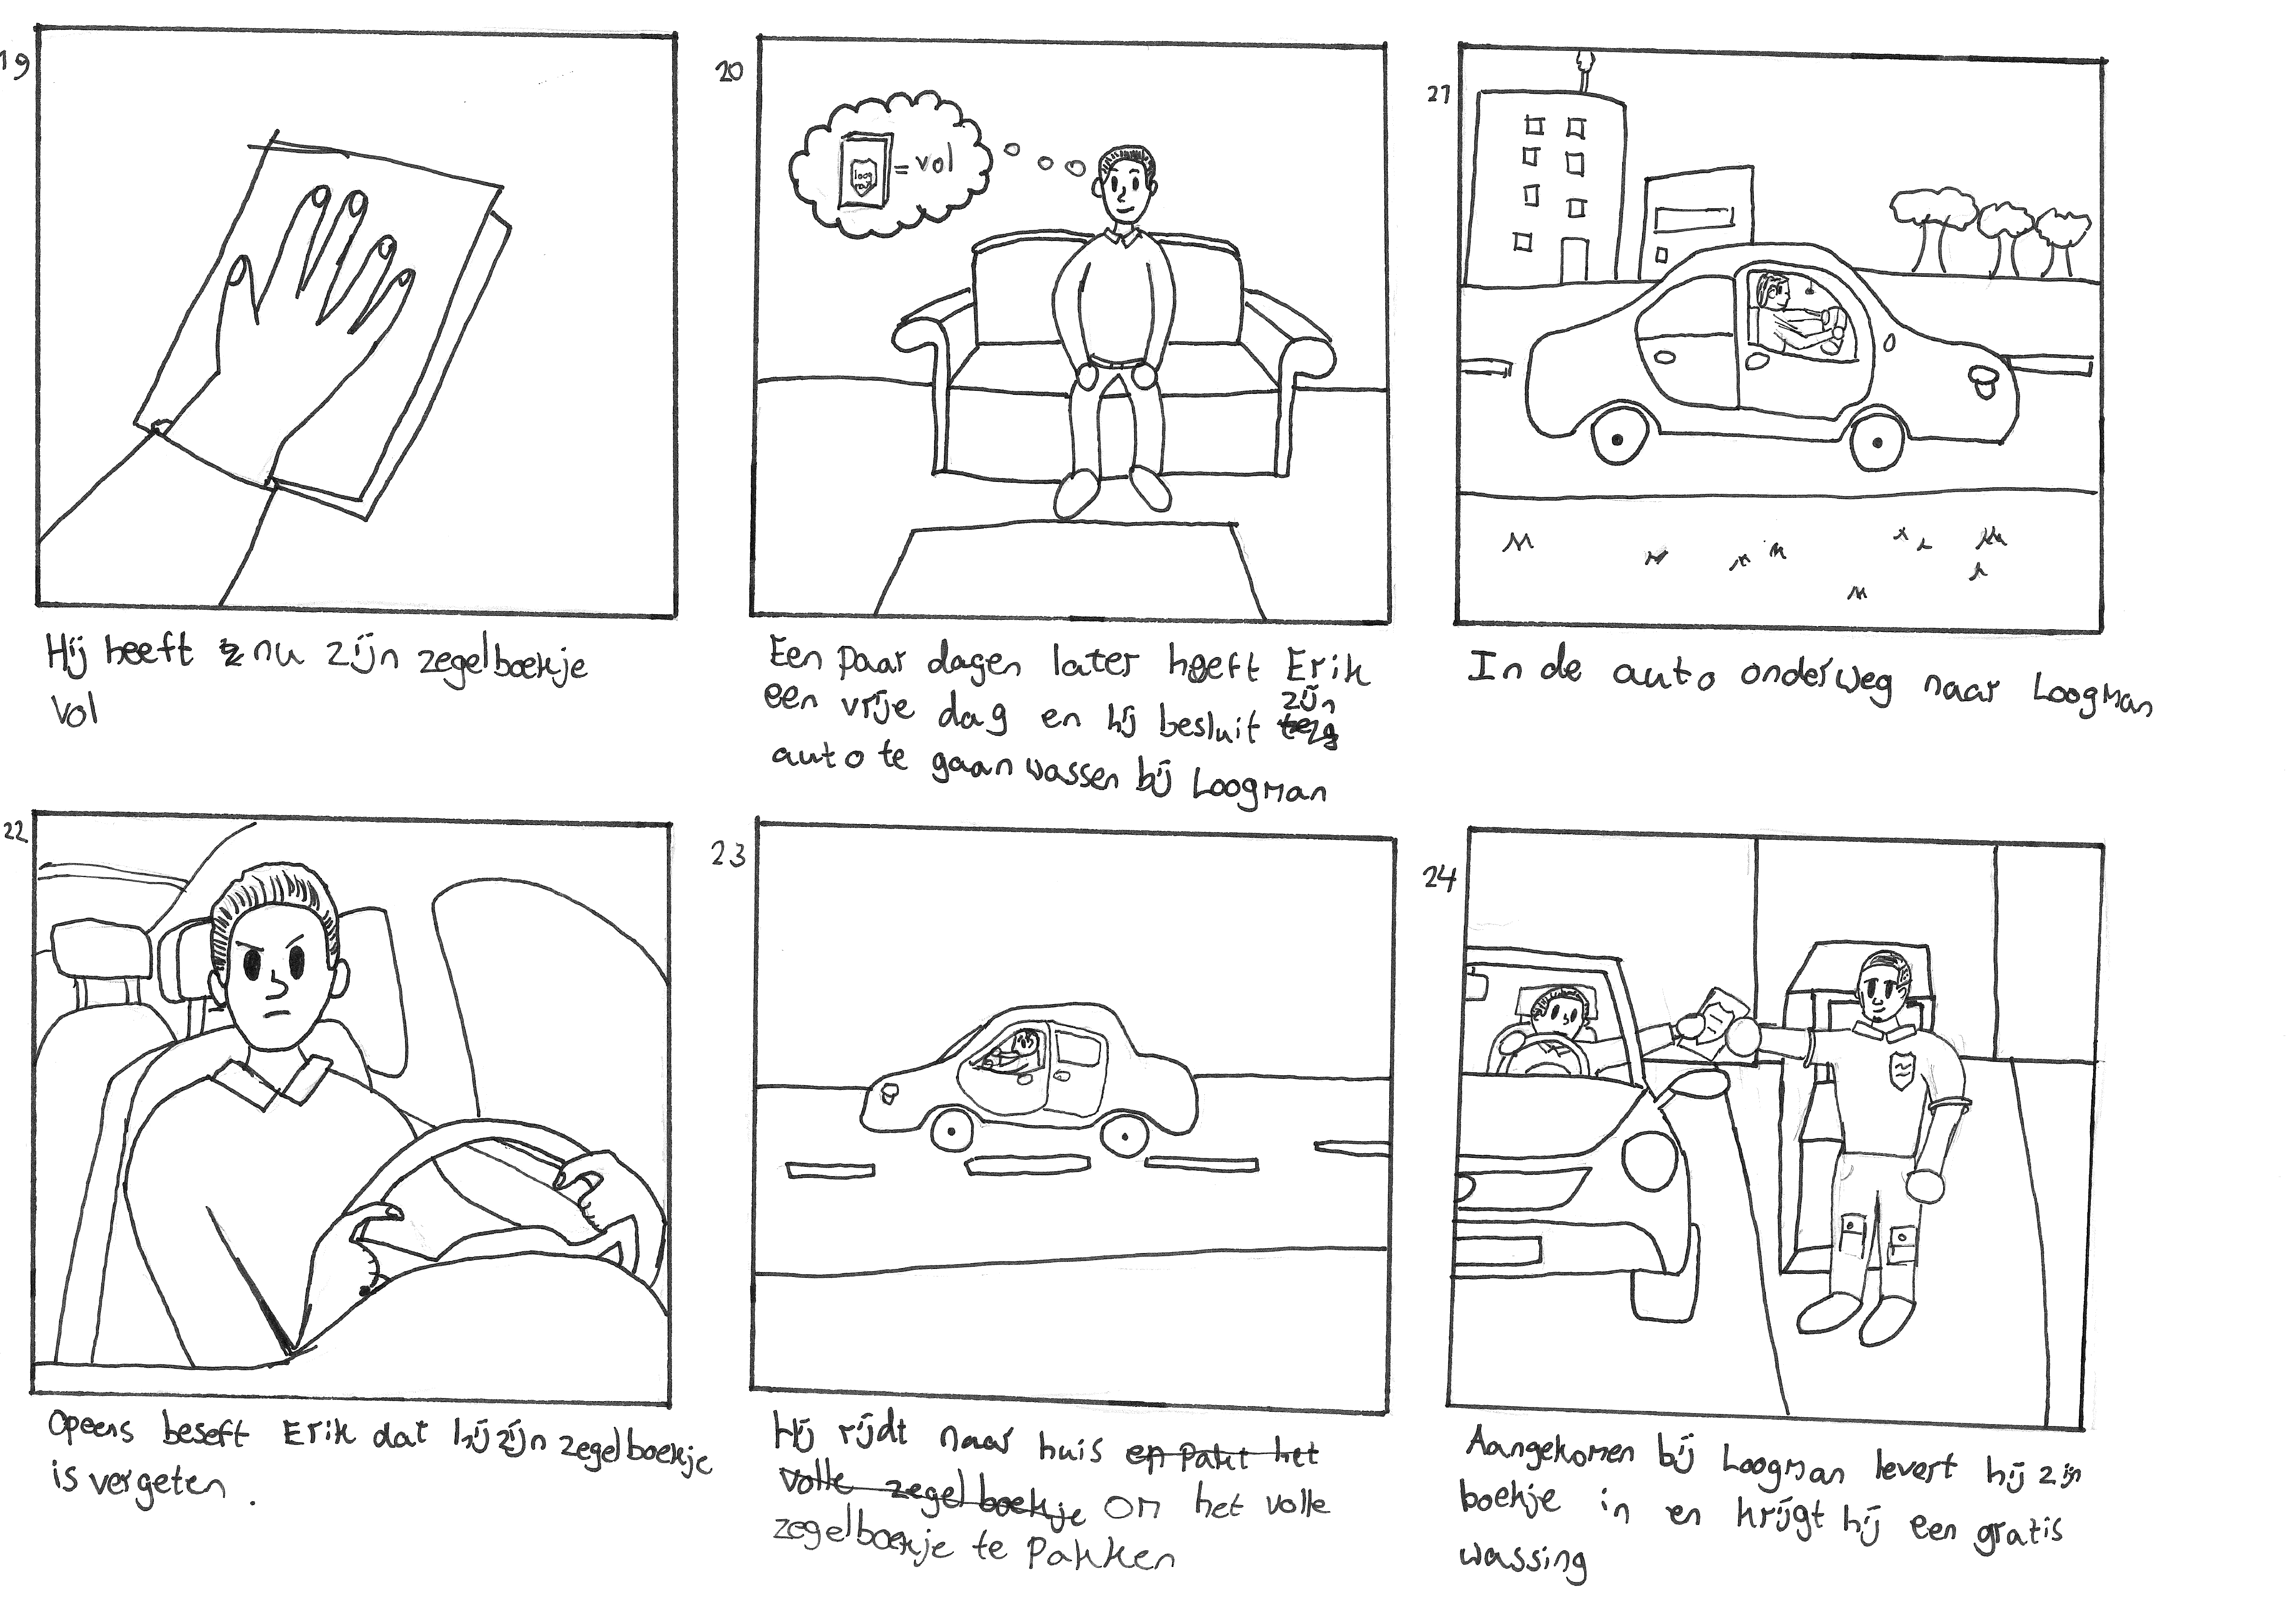 19
Hij heeft nu zijn zegelboekje
vol
20
loog
man
= vol
Een paar dagen later heeft Erik
een vrije dag en hij besluit zijn
auto te gaan wassen bij Loogman
21
In de auto onderweg naar Loogman
22
Opeens beseft Erik dat hij zijn zegelboekje
is vergeten.
23
Hij rijdt naar huis en pakt het
volle zegelboekje om het volle
zegelboekje te pakken
24
Aangekomen bij Loogman levert hij zijn
boekje in en krijgt hij een gratis
wassing